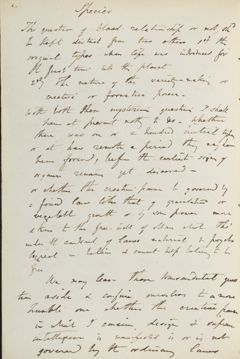 Species
The question of blood relationship or not, shd
be kept distinct from two others 1st the
original types when life was introduced for
the first time into the planet
2dly The nature of the variety-making or
creative or formative power.
With both these mysterious questions I shall
have at present nothing to do. whether
there was one or a hundred initial types
or at how remote a period they may have
been formed, before the earliest sign of
organic remains yet discovered
or whether the creative power is governed by
a fixed law like that of gravitation or
vegetable growth or by some power more
akin to the free-will of Man
under the control of laws material &
We may leave these transcendental ques
tion aside & confine ourselves to a more
humble one whether the creative power
in which I conceive, design & supreme
intelligence is manifested is or is not
governed by the ordinary laws